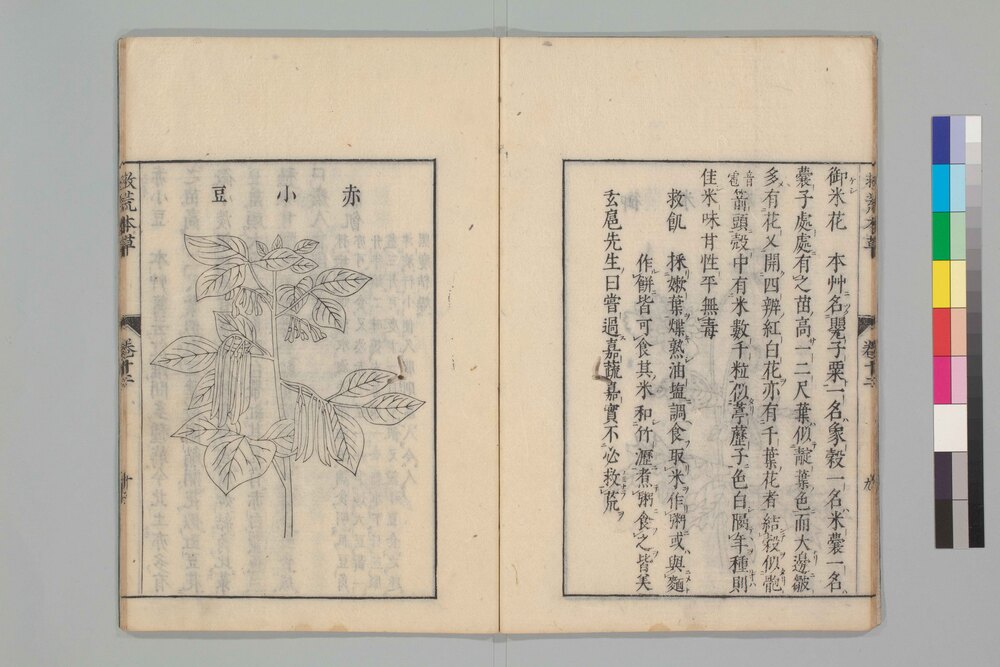 御米花 本艸名罌子粟一名象穀一名米囊一名
囊子處處有之苗高一二尺葉似靛葉色而大邊皺
多有花叉開四瓣紅白花亦有千葉花者結殼似骲
音雹箭頭殼中有米數千粒似葶藶子色白隔年種則
佳米味甘性平無毒
救飢 採嫩葉煠熟油塩調食取米作粥或與麵
作餅皆可食其米和竹瀝煮粥食之皆美
玄扈先生曰嘗過嘉蔬嘉實不必救荒
救荒本草
卷十二
赤小豆
救荒本草
卷十二